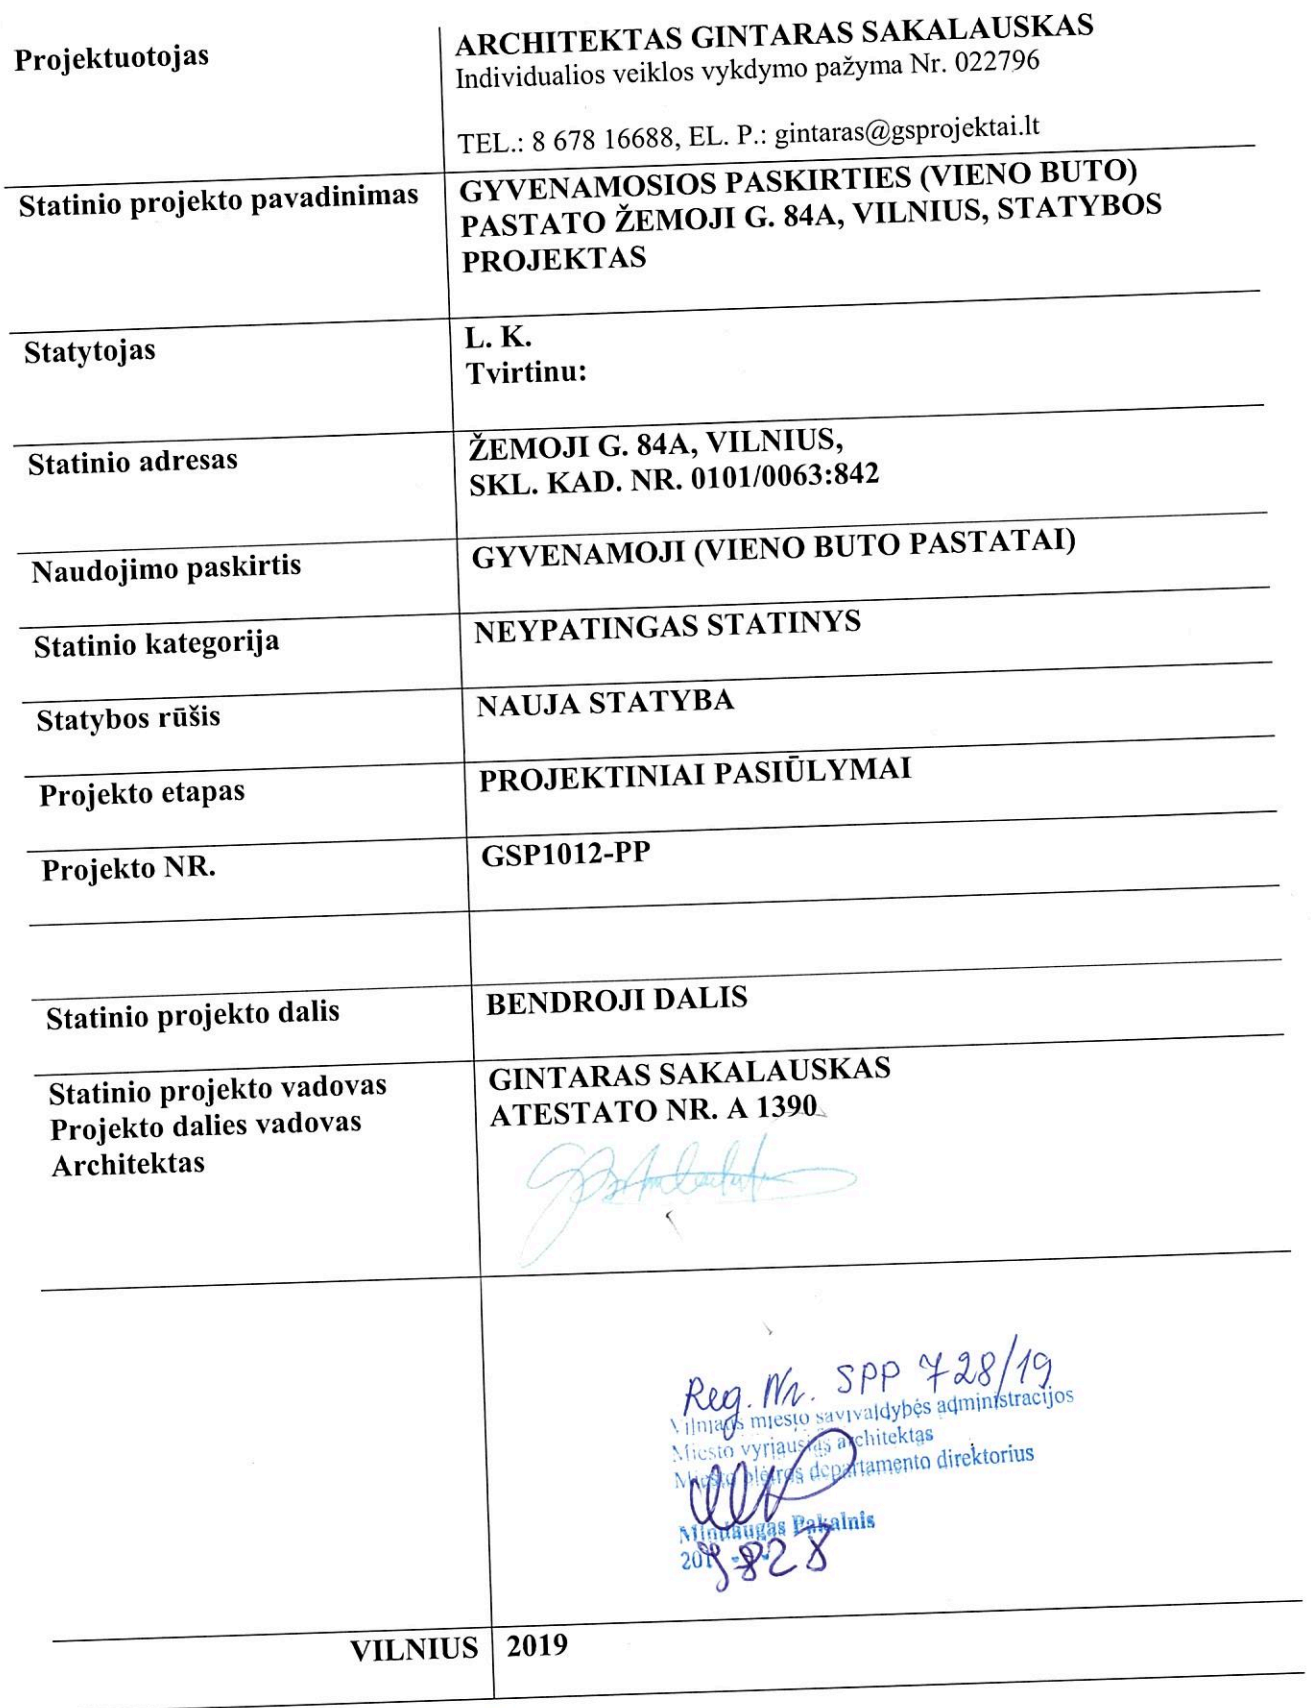 Projektuotojas
ARCHITEKTAS GINTARAS SAKALAUSKAS
Individualios veiklos vykdymo pažyma Nr. 022796
TEL.: 8 678 16688, EL. P.: gintaras@gsprojektai.lt
Statinio projekto pavadinimas
GYVENAMOSIOS PASKIRTIES (VIENO BUTO)
PASTATO ŽEMOJI G. 84A, VILNIUS, STATYBOS
PROJEKTAS
Statytojas
L. K.
Tvirtinu:
Statinio adresas
ŽEMOJI G. 84A, VILNIUS,
SKL. KAD. NR. 0101/0063:842
Naudojimo paskirtis
GYVENAMOJI (VIENO BUTO PASTATAI)
Statinio kategorija
NEYPATINGAS STATINYS
Statybos rūšis
NAUJA STATYBA
Projekto etapas
PROJEKTINIAI PASIŪLYMAI
Projekto NR.
GSP1012-PP
Statinio projekto dalis
BENDROJI DALIS
Statinio projekto vadovas
Projekto dalies vadovas
Architektas
GINTARAS SAKALAUSKAS
ATESTATO NR. A 1390
Reg. Nr. SPP 728/19
Vilniaus miesto savivaldybės administracijos
Miesto vyriausias architektas
Miesto plėtros departamento direktorius
Mindaugas Pakalnis
VILNIUS 2019